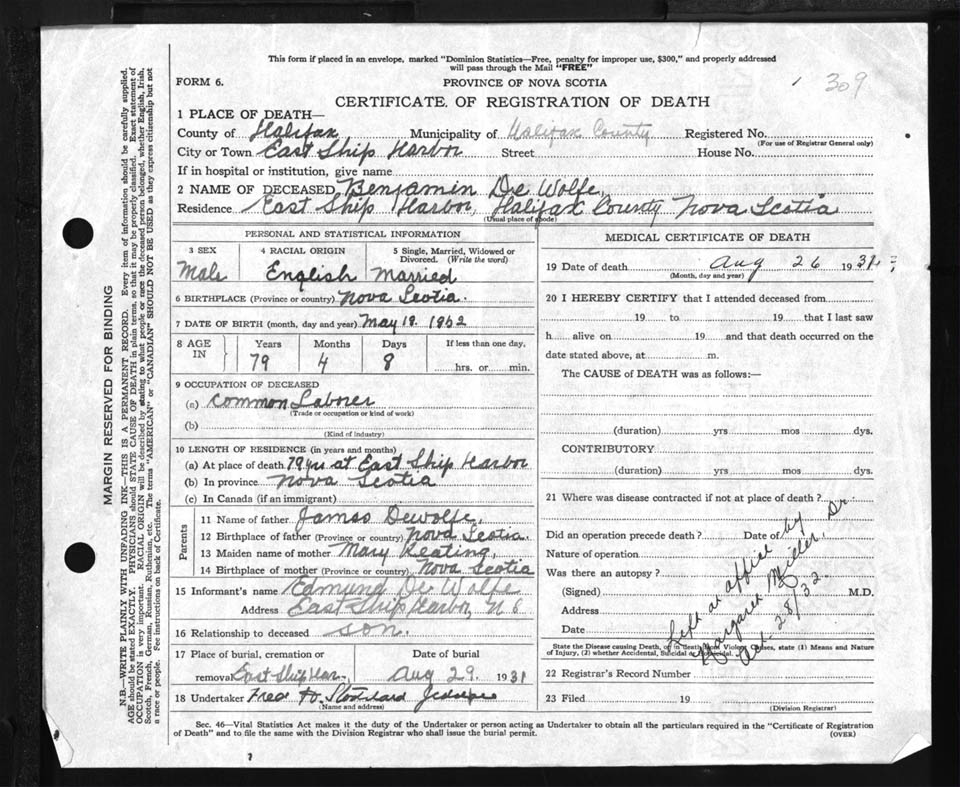 This form if placed in an envelope, marked "Dominion Statistics—Free, penalty for improper use, $300," and properly addressed
will pass through the Mail "FREE"
FORM 6.
PROVINCE OF NOVA SCOTIA
309
CERTIFICATE OF REGISTRATION OF DEATH
1 PLACE OF DEATH—
County of Halifax Municipality of Halifax County Registered No.
(For use of Registrar General only)
City or Town East Ship Harbor Street House No.
If in hospital or institution, give name
2 NAME OF DECEASED Benjamin De Wolfe,
Residence East Ship Harbor, Halifax County Nova Scotia
(Usual place of abode)
PERSONAL AND STATISTICAL INFORMATION
3 SEX 4 RACIAL ORIGIN 5 Single, Married, Widowed or
Divorced. (Write the word)
Male English Married
6 BIRTHPLACE (Province or country) Nova Scotia.
7 DATE OF BIRTH (month, day and year) May 19. 1852
8 AGE IN Years Months Days If less than one day,
79 4 8 hrs. or min.
9 OCCUPATION OF DECEASED
(a) Common Laborer
(Trade or occupation or kind of work)
(b)
(Kind of industry)
10 LENGTH OF RESIDENCE (in years and months)
(a) At place of death 79 yrs at East Ship Harbor
(b) In province Nova Scotia
(c) In Canada (if an immigrant)
Parents
11 Name of father James Dewolfe,
12 Birthplace of father (Province or country) Nova Scotia.
13 Maiden name of mother Mary Keating,
14 Birthplace of mother (Province or country) Nova Scotia
15 Informant's name Edmund De Wolfe
Address East Ship Harbor, N S
16 Relationship to deceased son.
17 Place of burial, cremation or Date of burial
removal East Ship Har Aug 29 1931
18 Undertaker Fred H. Stoddard
(Name and address)
MEDICAL CERTIFICATE OF DEATH
19 Date of death Aug 26 1931
(Month, day and year)
20 I HEREBY CERTIFY that I attended deceased from
19 to 19 that I last saw
h alive on 19 and that death occurred on the
date stated above, at m.
The CAUSE of DEATH was as follows:—
(duration) yrs mos dys.
CONTRIBUTORY
(duration) yrs mos dys.
21 Where was disease contracted if not at place of death?
Did an operation precede death? Date of
Nature of operation
Was there an autopsy?
(Signed) M.D.
Address
Date
Left at office by Dr
Margaret Miller,
28/32.
State the Disease causing Death, or in deaths from Violent Causes, state (1) Means and Nature
of Injury, (2) whether Accidental, Suicidal or Homicidal.
22 Registrar's Record Number
23 Filed 19
(Division Registrar)
Sec. 46—Vital Statistics Act makes it the duty of the Undertaker or person acting as Undertaker to obtain all the particulars required in the "Certificate of Registration
of Death" and to file the same with the Division Registrar who shall issue the burial permit. (OVER)
MARGIN RESERVED FOR BINDING
N.B.—WRITE PLAINLY WITH UNFADING INK—THIS IS A PERMANENT RECORD. Every item of information should be carefully supplied.
AGE should be stated EXACTLY. PHYSICIANS should STATE CAUSE OF DEATH in plain terms, so that it may be properly classified. Exact statement of
OCCUPATION is very important. RACIAL ORIGIN will be described by stating to what people or race the deceased person belonged, whether English, Irish,
Scotch, French, German, Russian, Ruthenian, etc. The terms "AMERICAN" or "CANADIAN" SHOULD NOT BE USED as they express citizenship but not
a race or people. See instructions on back of Certificate.